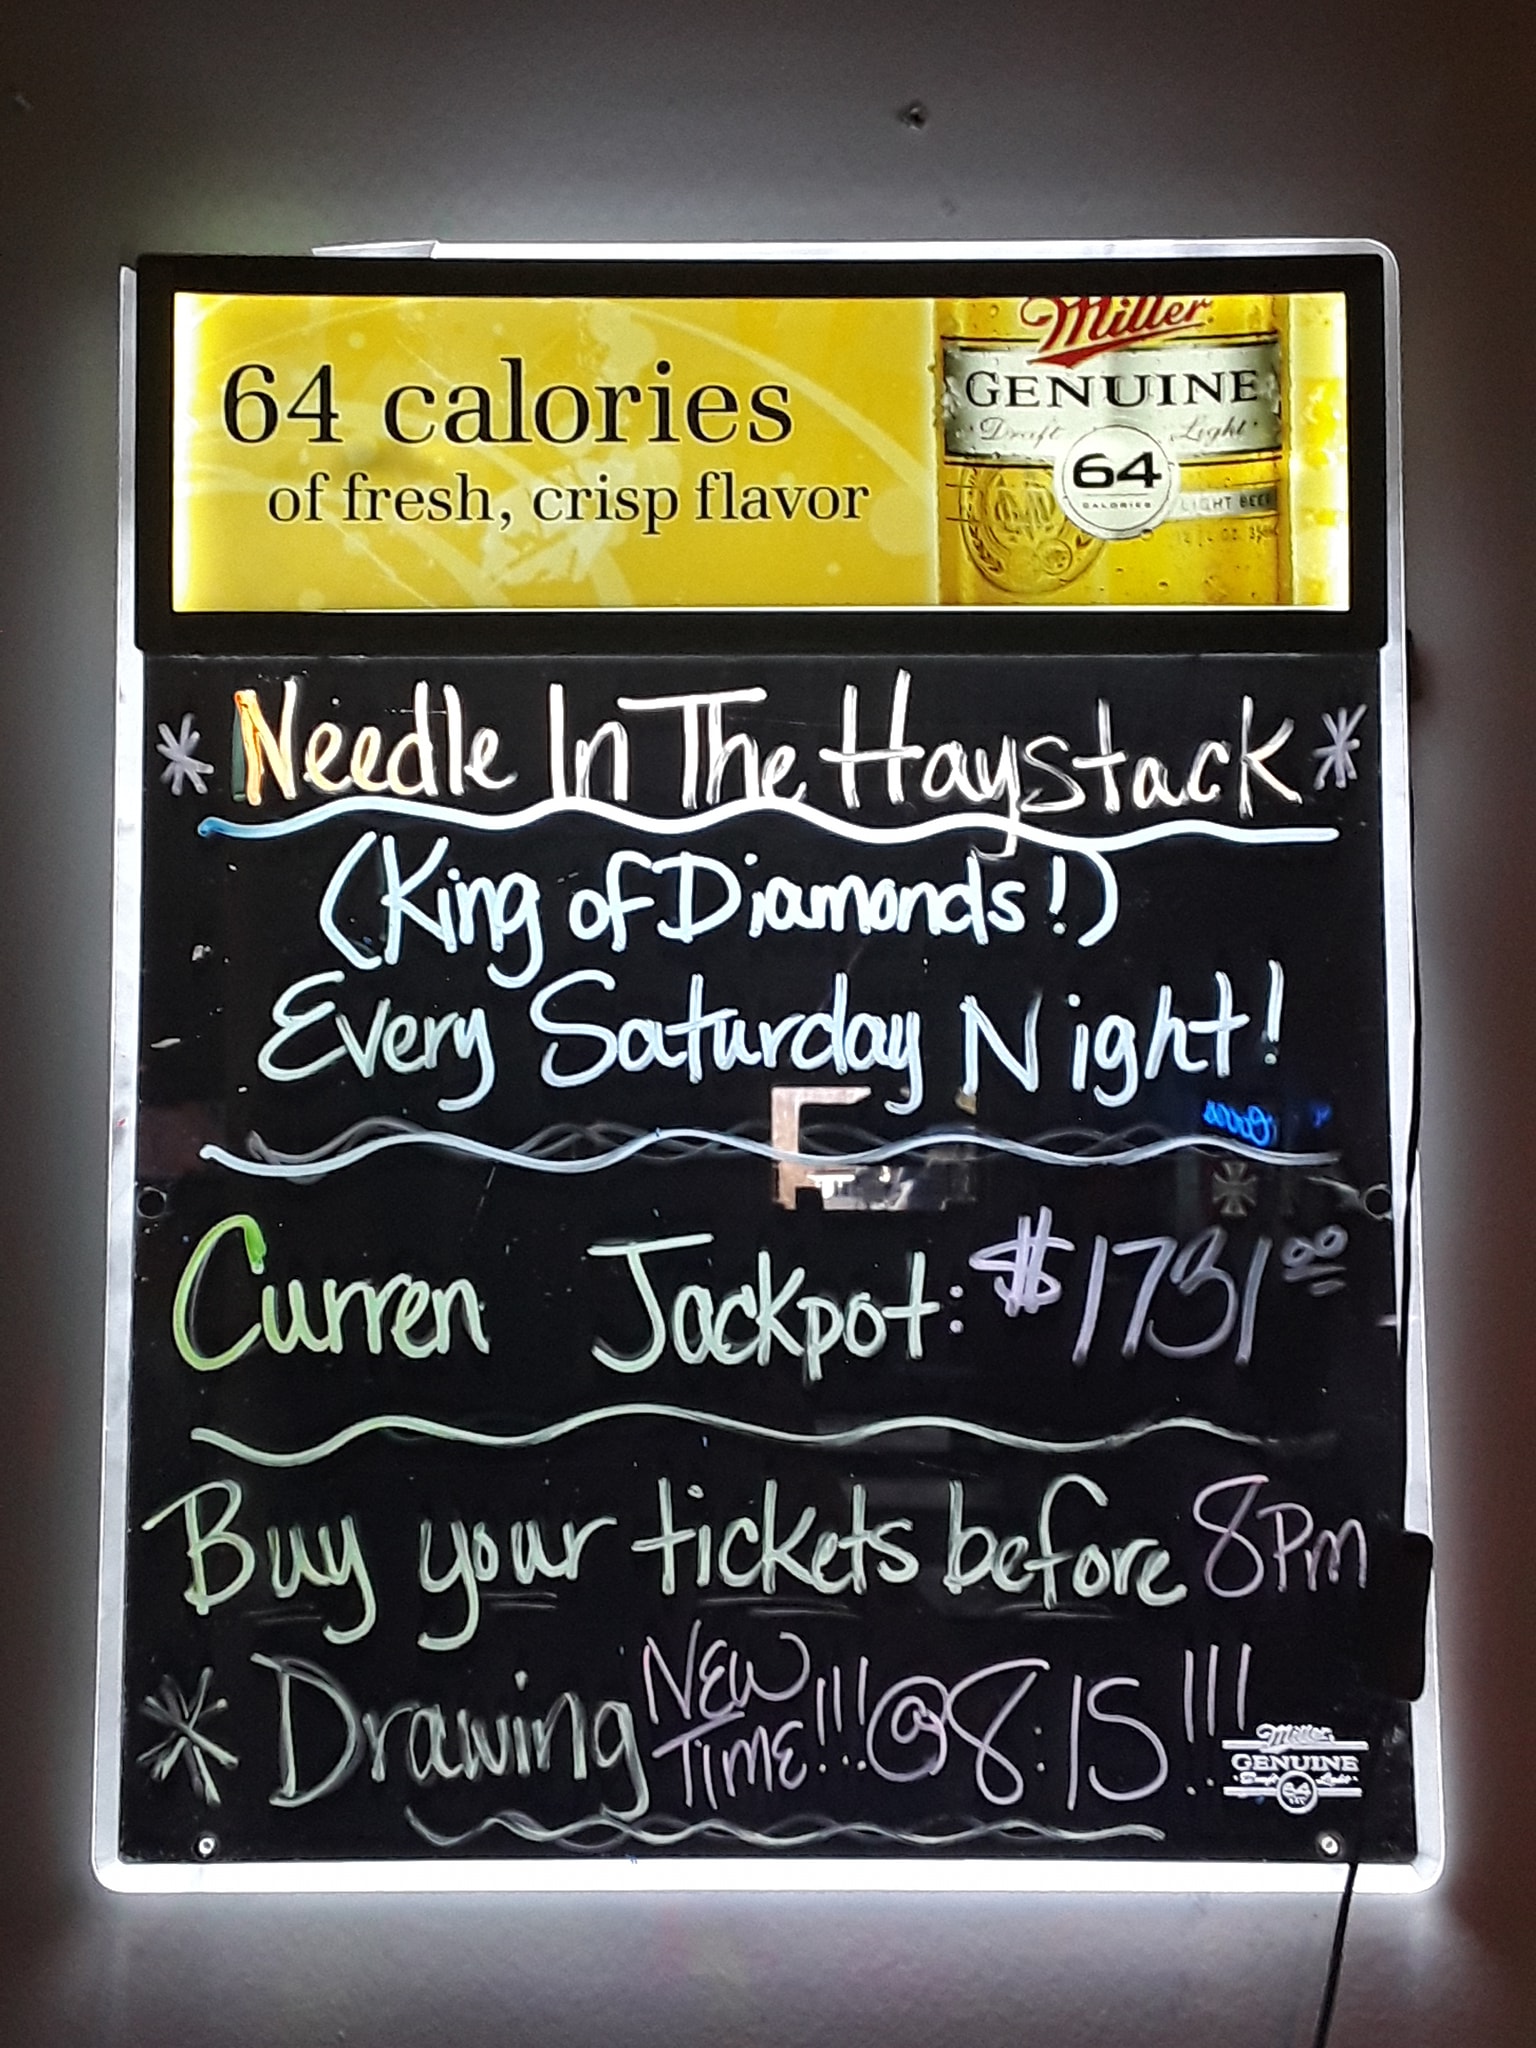 64 calories
of fresh, crisp flavor
Miller
GENUINE
Draft Light
64
CALORIES
LIGHT BEER
* Needle In The Haystack *
(King of Diamonds!)
Every Saturday Night!
Curren Jackpot: $1731 00
Buy your tickets before 8PM
* Drawing NEW TIME!!! @ 8:15!!!
Miller
GENUINE
Draft Light
64